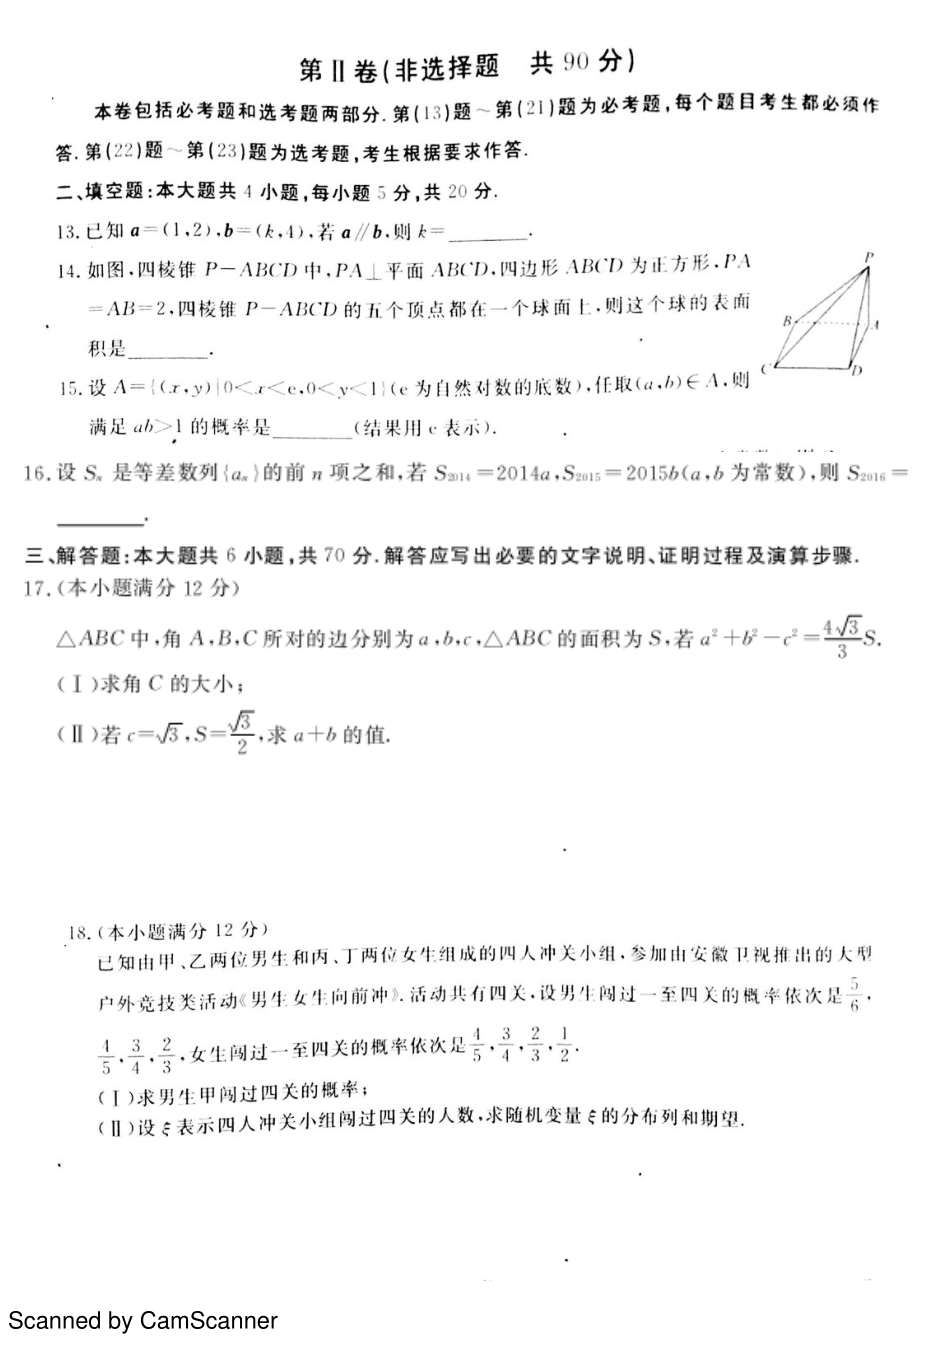 第Ⅱ卷(非选择题　共 90 分)
本卷包括必考题和选考题两部分.第(13)题～第(21)题为必考题,每个题目考生都必须作
答.第(22)题～第(23)题为选考题,考生根据要求作答.
二、填空题:本大题共 4 小题,每小题 5 分,共 20 分.
13.已知 a=(1,2),b=(k,4),若 a∥b,则 k=________.
14.如图,四棱锥 P-ABCD 中,PA⊥平面 ABCD,四边形 ABCD 为正方形,PA
=AB=2,四棱锥 P-ABCD 的五个顶点都在一个球面上,则这个球的表面
积是________.
P
B
A
C
D
15.设 A={(x,y)|0<x<e,0<y<1}(e 为自然对数的底数),任取(a,b)∈A,则
满足 ab>1 的概率是________(结果用 e 表示).
16.设 Sₙ 是等差数列{aₙ}的前 n 项之和,若 S₂₀₁₄=2014a,S₂₀₁₅=2015b(a,b 为常数),则 S₂₀₁₆=
________.
三、解答题:本大题共 6 小题,共 70 分.解答应写出必要的文字说明、证明过程及演算步骤.
17.(本小题满分 12 分)
△ABC 中,角 A,B,C 所对的边分别为 a,b,c,△ABC 的面积为 S,若 a²+b²-c²=4√3/3 S.
(Ⅰ)求角 C 的大小;
(Ⅱ)若 c=√3,S=√3/2,求 a+b 的值.
18.(本小题满分 12 分)
已知由甲、乙两位男生和丙、丁两位女生组成的四人冲关小组,参加由安徽卫视推出的大型
户外竞技类活动《男生女生向前冲》.活动共有四关,设男生闯过一至四关的概率依次是 5/6,
4/5,3/4,2/3,女生闯过一至四关的概率依次是 4/5,3/4,2/3,1/2.
(Ⅰ)求男生甲闯过四关的概率;
(Ⅱ)设 ξ 表示四人冲关小组闯过四关的人数,求随机变量 ξ 的分布列和期望.
Scanned by CamScanner